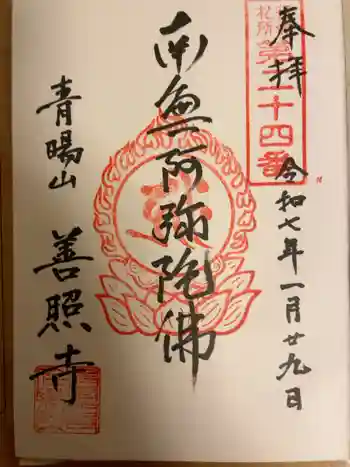 奉拝
札所
第二十四番
令和七年一月廿九日
南無阿弥陀佛
青陽山
善照寺